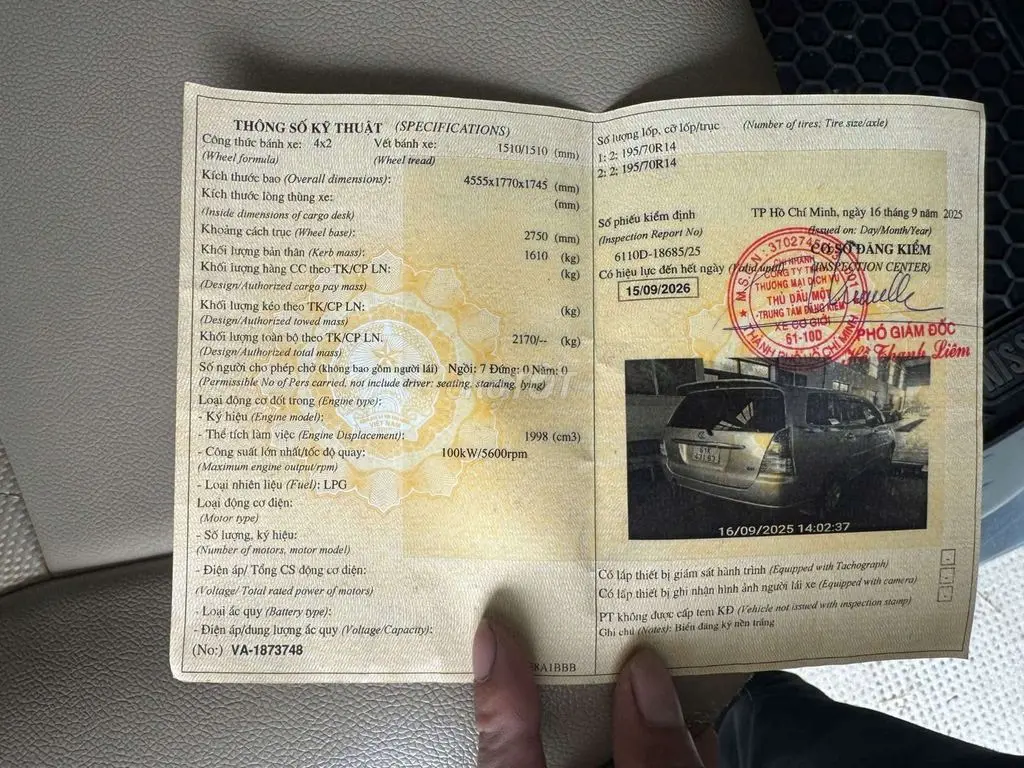 THÔNG SỐ KỸ THUẬT (SPECIFICATIONS)
Công thức bánh xe: 4x2 Vết bánh xe: 1510/1510 (mm)
(Wheel formula) (Wheel tread)
Kích thước bao (Overall dimensions): 4555x1770x1745 (mm)
Kích thước lòng thùng xe: (mm)
(Inside dimensions of cargo desk)
Khoảng cách trục (Wheel base): 2750 (mm)
Khối lượng bản thân (Kerb mass): 1610 (kg)
Khối lượng hàng CC theo TK/CP LN: (kg)
(Design/Authorized cargo pay mass)
Khối lượng kéo theo TK/CP LN: (kg)
(Design/Authorized towed mass)
Khối lượng toàn bộ theo TK/CP LN. 2170/-- (kg)
(Design/Authorized total mass)
Số người cho phép chở (không bao gồm người lái) Ngồi: 7 Đứng: 0 Nằm: 0
(Permissible No of Pers carried, not include driver: seating, standing, lying)
Loại động cơ đốt trong (Engine type):
- Ký hiệu (Engine model):
- Thể tích làm việc (Engine Displacement): 1998 (cm3)
- Công suất lớn nhất/tốc độ quay: 100kW/5600rpm
(Maximum engine output/rpm)
- Loại nhiên liệu (Fuel): LPG
Loại động cơ điện:
(Motor type)
- Số lượng, ký hiệu:
(Number of motors, motor model)
- Điện áp/ Tổng CS động cơ điện:
(Voltage/ Total rated power of motors)
- Loại ắc quy (Battery type):
- Điện áp/dung lượng ắc quy (Voltage/Capacity):
(No:) VA-1873748
8A1BBB
Số lượng lốp, cỡ lốp/trục (Number of tires; Tire size/axle)
1: 2; 195/70R14
2: 2; 195/70R14
Số phiếu kiểm định
(Inspection Report No)
6110D-18685/25
Có hiệu lực đến hết ngày (Valid until)
15/09/2026
TP Hồ Chí Minh, ngày 16 tháng 9 năm 2025
(Issued on: Day/Month/Year)
CƠ SỞ ĐĂNG KIỂM
(INSPECTION CENTER)
CHI NHÁNH
CÔNG TY TNHH
THƯƠNG MẠI DỊCH VỤ
THỦ DẦU MỘT
TRUNG TÂM ĐĂNG KIỂM
XE CƠ GIỚI
61-10D
THÀNH PHỐ HỒ CHÍ MINH
PHÓ GIÁM ĐỐC
Thanh Liêm
16/09/2025 14:02:37
Có lắp thiết bị giám sát hành trình (Equipped with Tachograph)
Có lắp thiết bị ghi nhận hình ảnh người lái xe (Equipped with camera)
PT không được cấp tem KĐ (Vehicle not issued with inspection stamp)
Ghi chú (Notes): Biển đăng ký nền trắng